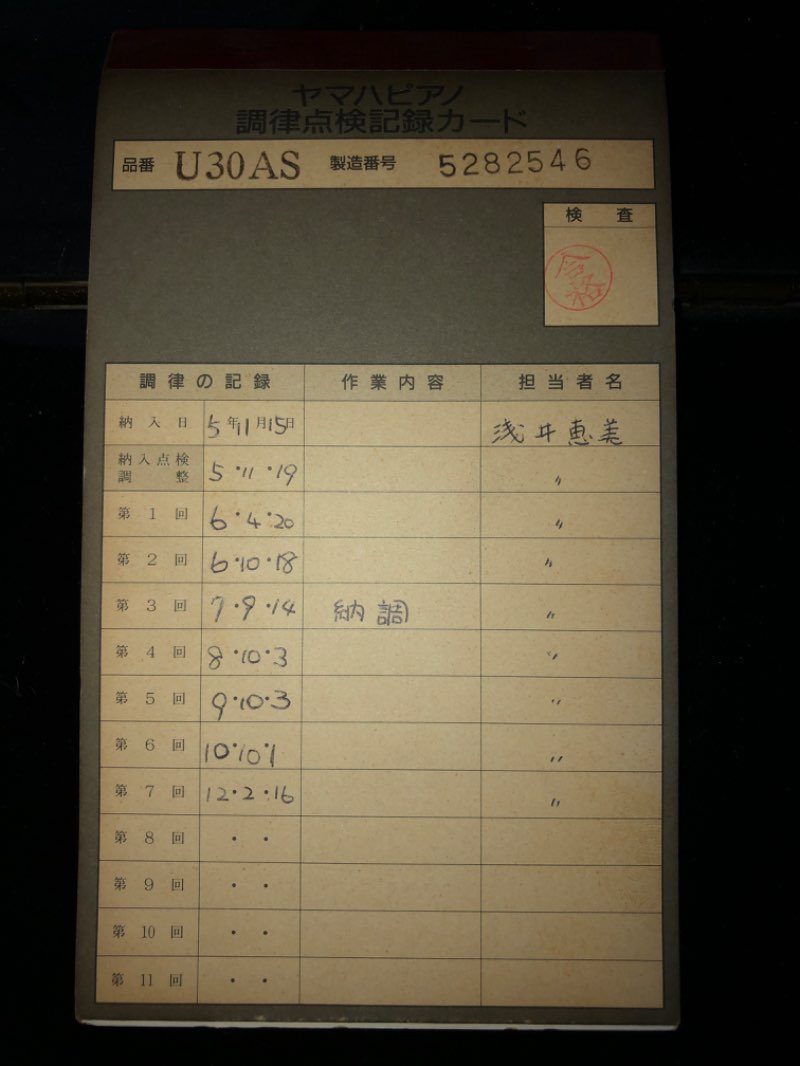 ヤマハピアノ
調律点検記録カード
品番 U30AS 製造番号 5282546
検査
調律の記録 作業内容 担当者名
納入日 5年11月15日 浅井恵美
納入点検調整 5・11・19 〃
第1回 6・4・20 〃
第2回 6・10・18 〃
第3回 7・9・14 納調 〃
第4回 8・10・3 〃
第5回 9・10・3 〃
第6回 10・10・1 〃
第7回 12・2・16 〃
第8回 ・ ・
第9回 ・ ・
第10回 ・ ・
第11回 ・ ・